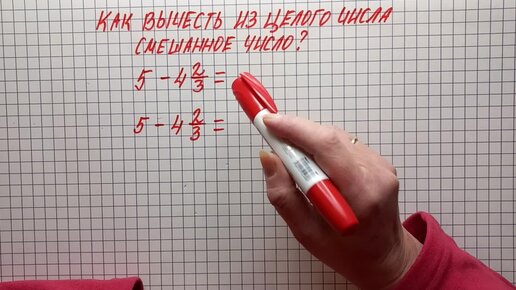 КАК ВЫЧЕСТЬ ИЗ ЦЕЛОГО ЧИСЛА
СМЕШАННОЕ ЧИСЛО?
5 - 4 2/3 =
5 - 4 2/3 =